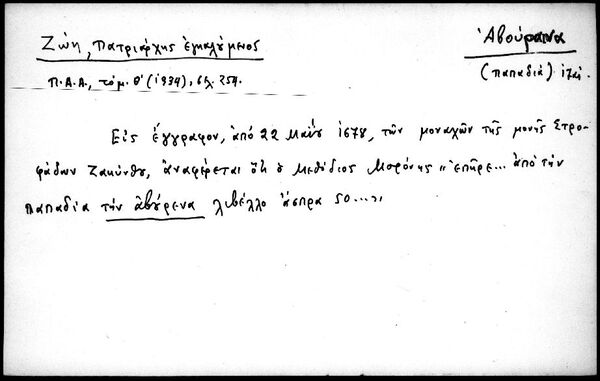 Ζώη, Πατριάρχης ἐγκαλύμενος
Ἀβούραινα
Π.Α.Α., τόμ. Θ' (1934), σελ. 254.
(παπαδιὰ)
Εἰς ἔγγραφον, ἀπὸ 22 Μαΐου 1678, τῶν μοναχῶν τῆς μονῆς Στρο-
φάδων Ζακύνθου, ἀναφέρεται ὅτι ὁ Μεθόδιος Μορόνης "ἐπῆρε... ἀπὸ τὴν
παπαδία τὴν ἀβούρενα λιβέλλο ἄσπρα 50..."